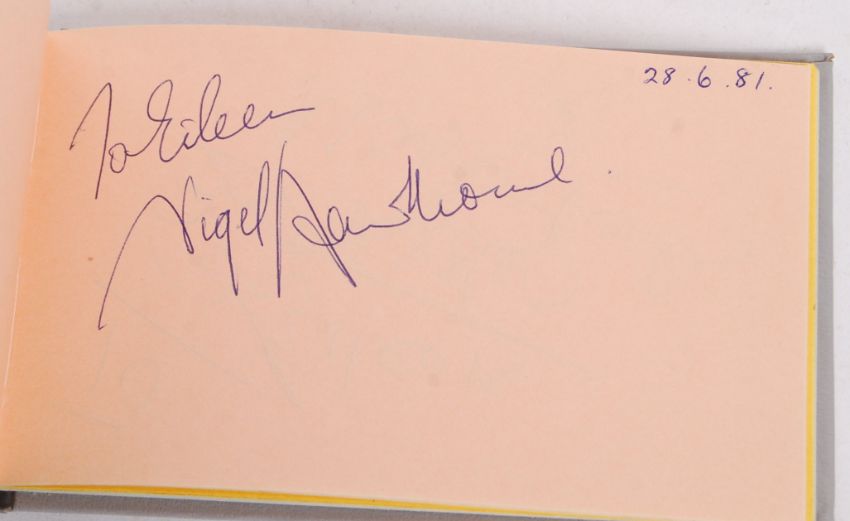 28.6.81.
To Eileen
Nigel Hawthorne